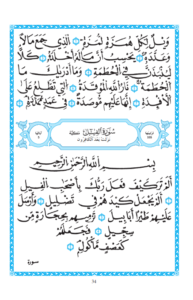 وَيْلٌ لِّكُلِّ هُمَزَةٍ لُّمَزَةٍ ۝ الَّذِي جَمَعَ مَالًا
وَعَدَّدَهُ ۝ يَحْسَبُ أَنَّ مَالَهُ أَخْلَدَهُ ۝ كَلَّا
لَيُنبَذَنَّ فِي الْحُطَمَةِ ۝ وَمَا أَدْرَاكَ مَا
الْحُطَمَةُ ۝ نَارُ اللَّهِ الْمُوقَدَةُ ۝ الَّتِي تَطَّلِعُ عَلَى
الْأَفْئِدَةِ ۝ إِنَّهَا عَلَيْهِم مُّؤْصَدَةٌ ۝ فِي عَمَدٍ مُّمَدَّدَةٍ ۝
سُورَةُ الْفِيلِ
بِسْمِ اللَّهِ الرَّحْمَٰنِ الرَّحِيمِ
أَلَمْ تَرَ كَيْفَ فَعَلَ رَبُّكَ بِأَصْحَابِ الْفِيلِ
۝ أَلَمْ يَجْعَلْ كَيْدَهُمْ فِي تَضْلِيلٍ ۝ وَأَرْسَلَ
عَلَيْهِمْ طَيْرًا أَبَابِيلَ ۝ تَرْمِيهِم بِحِجَارَةٍ مِّن
سِجِّيلٍ ۝ فَجَعَلَهُمْ
كَعَصْفٍ مَّأْكُولٍ ۝
سورة